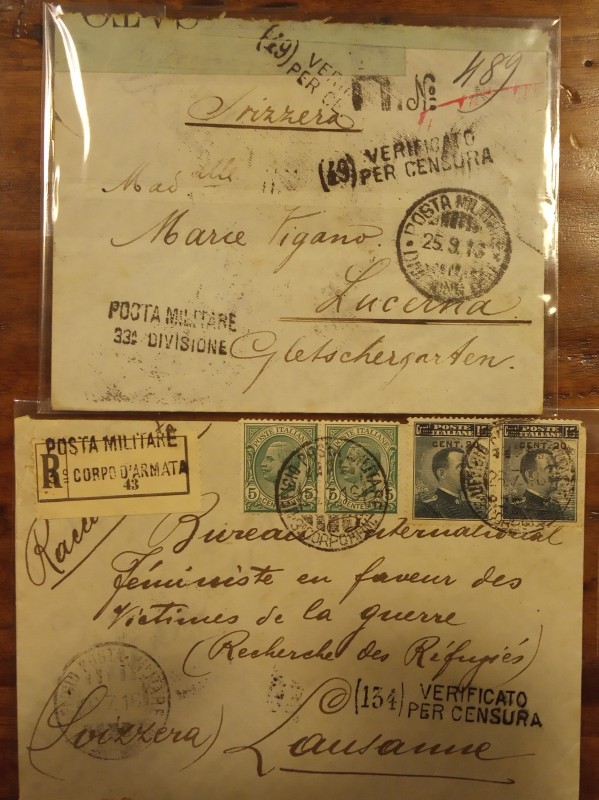 (49) VERIFICATO
PER CENSURA
N.º 489
Svizzera
(49) VERIFICATO
PER CENSURA
Mad alle
POSTA MILITARE
25.9.16
Marie Vigano.
Lucerna
POSTA MILITARE
33ª DIVISIONE
Gletschergarten.
POSTA MILITARE
R
CORPO D'ARMATA
43
POSTE ITALIANE
5 CENTESIMI 5
POSTE ITALIANE
5 CENTESIMI 5
POSTE ITALIANE
15
CENT. 20
POSTE ITALIANE
15
CENT. 20
Bureau International
féministe en faveur des
Victimes de la guerre
(Recherche des Réfugiés)
POSTA MILITARE
(134) VERIFICATO
PER CENSURA
(Svizzera)
Lausanne